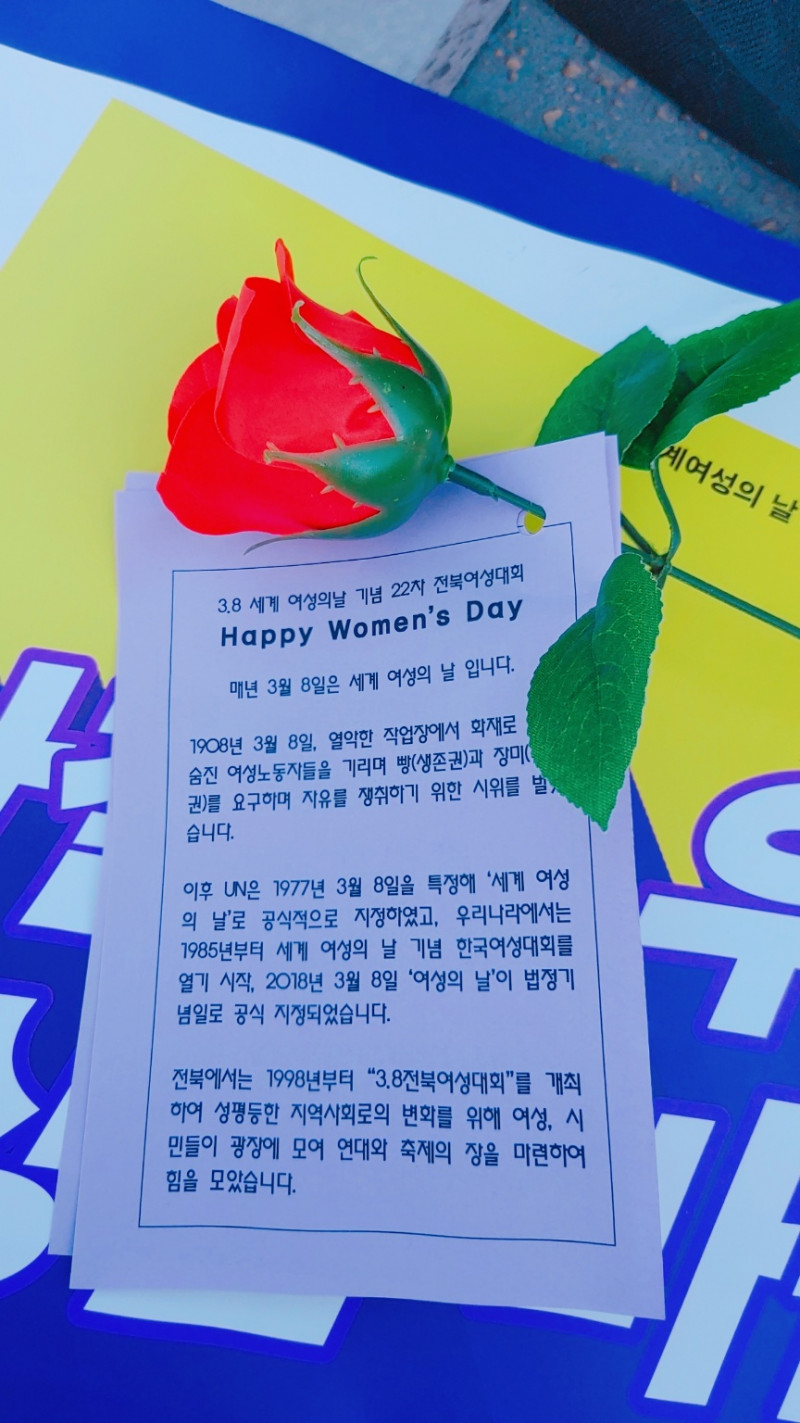 계여성의 날
3.8 세계 여성의날 기념 22차 전북여성대회
Happy Women's Day
매년 3월 8일은 세계 여성의 날 입니다.
1908년 3월 8일, 열악한 작업장에서 화재로
숨진 여성노동자들을 기리며 빵(생존권)과 장미(
권)를 요구하며 자유를 쟁취하기 위한 시위를
습니다.
이후 UN은 1977년 3월 8일을 특정해 '세계 여성
의 날'로 공식적으로 지정하였고, 우리나라에서는
1985년부터 세계 여성의 날 기념 한국여성대회를
열기 시작, 2018년 3월 8일 '여성의 날'이 법정기
념일로 공식 지정되었습니다.
전북에서는 1998년부터 "3.8전북여성대회"를 개최
하여 성평등한 지역사회로의 변화를 위해 여성, 시
민들이 광장에 모여 연대와 축제의 장을 마련하여
힘을 모았습니다.